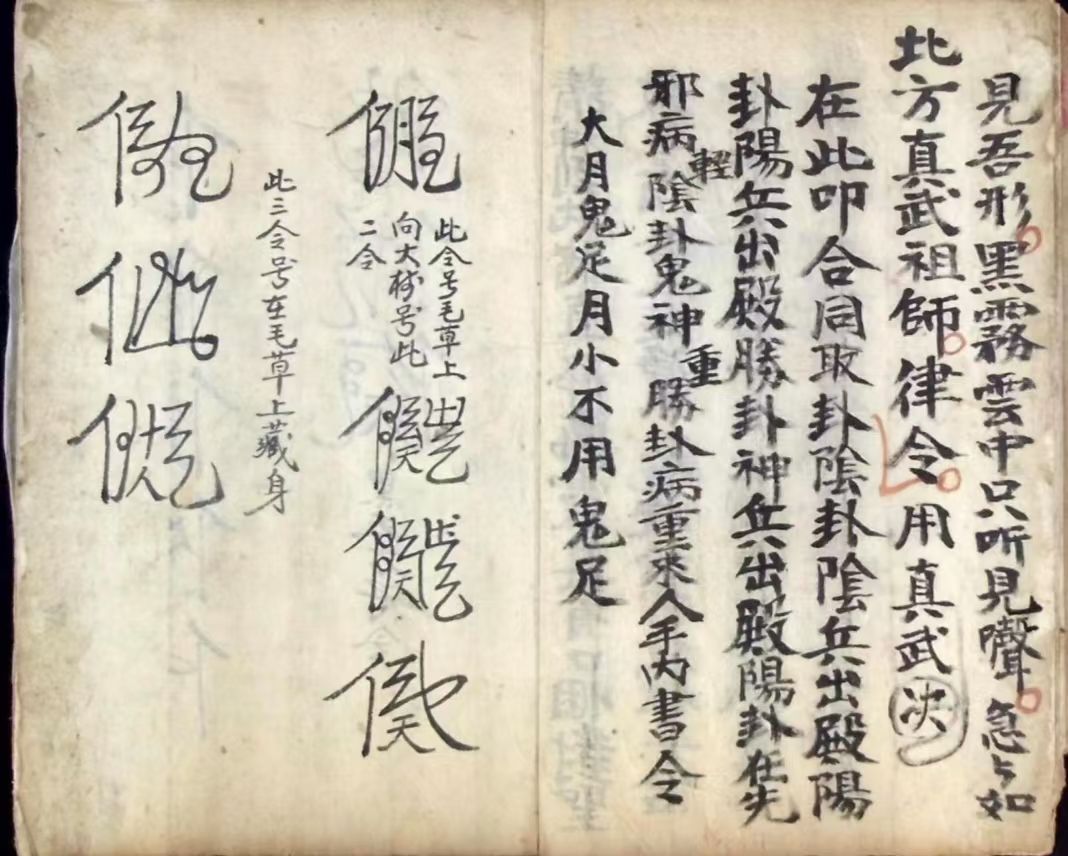 見吾形黑霧雲中只听見聲急々如
北方真武祖師律令用真武决
在此叩合同取卦陰卦陰兵出殿陽
卦陽兵出殿勝卦神兵出殿陽卦在先
邪病輕陰卦鬼神重勝卦病重求人手內書令
大月鬼足月小不用鬼足
此令号毛草上
向大樹号此
二令
此三令号在毛草上藏身